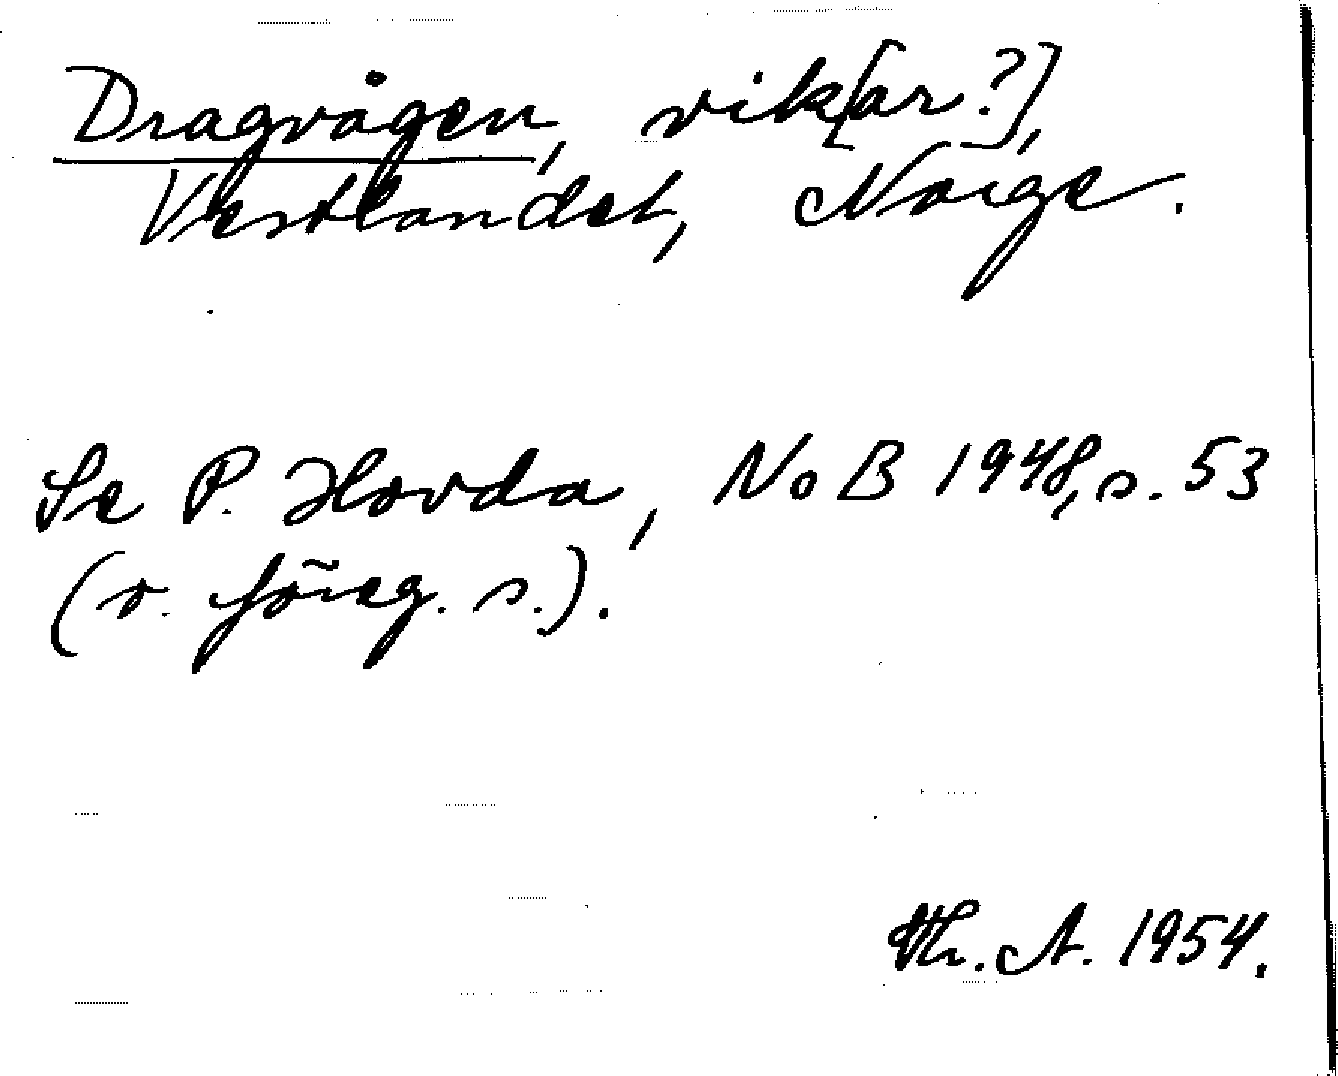 Dragvågen, vik[ar?],
Vestlandet, Norge.
Se P. Hovda, NoB 1948, s. 53
(o. föreg. s.).
Th. A. 1954.